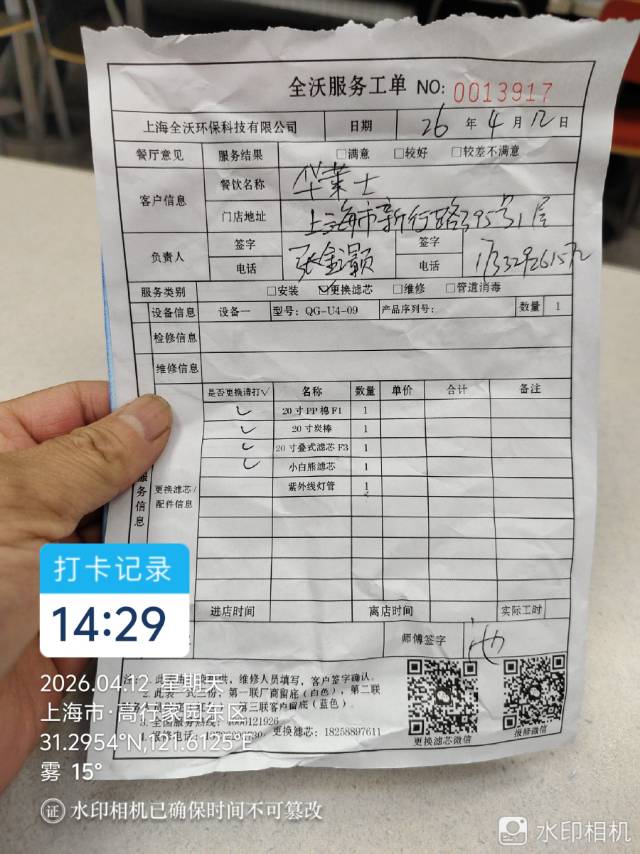 全沃服务工单 NO: 0013917
上海全沃环保科技有限公司 日期 26 年 4 月 12 日
餐厅意见 服务结果 □满意 □较好 □较差不满意
客户信息 餐饮名称 华莱士
门店地址 上海市新行路395号1层
负责人 签字 张金灏 签字
电话 电话
服务类别 □安装 ☑更换滤芯 □维修 □管道消毒
设备信息 设备一 型号: QG-U4-09 产品序列号: 数量 1
检修信息
维修信息
服务信息 更换滤芯/配件信息
是否更换请打√ 名称 数量 单价 合计 备注
√ 20寸PP棉F1 1
√ 20寸炭棒 1
√ 20寸叠式滤芯F3 1
√ 小白熊滤芯 1
紫外线灯管 1
进店时间 离店时间 实际工时
师傅签字
维修人员填写,客户签字确认。
第一联厂商留底(白色),第二联
第三联客户留底(蓝色)。
更换滤芯: 18258897611
更换滤芯微信 报修微信
打卡记录
14:29
2026.04.12 星期天
上海市·高行家园东区
31.2954°N,121.6125°E
雾 15°
证 水印相机已确保时间不可篡改
水印相机